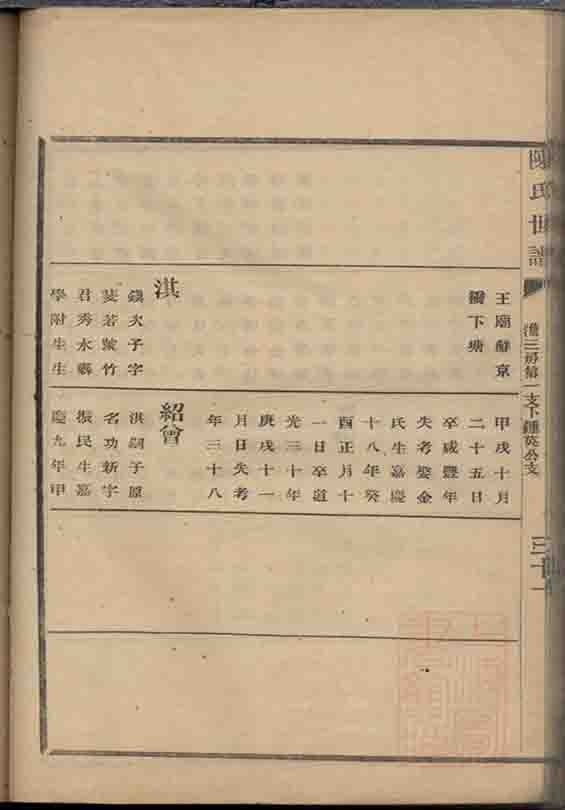 陳氏世譜
三房第一支下鍾英公支
三十一
王廟蘇京
下塘
淇
次子字
菉若號竹
君秀水縣
學附生生
甲戌十月
二十五日
卒咸豐年
失考娶金
氏生嘉慶
十八年癸
酉正月十
一日卒道
光三十年
庚戌十一
月日失考
年三十八
紹曾
淇嗣子原
名功新字
振民生嘉
慶九年甲